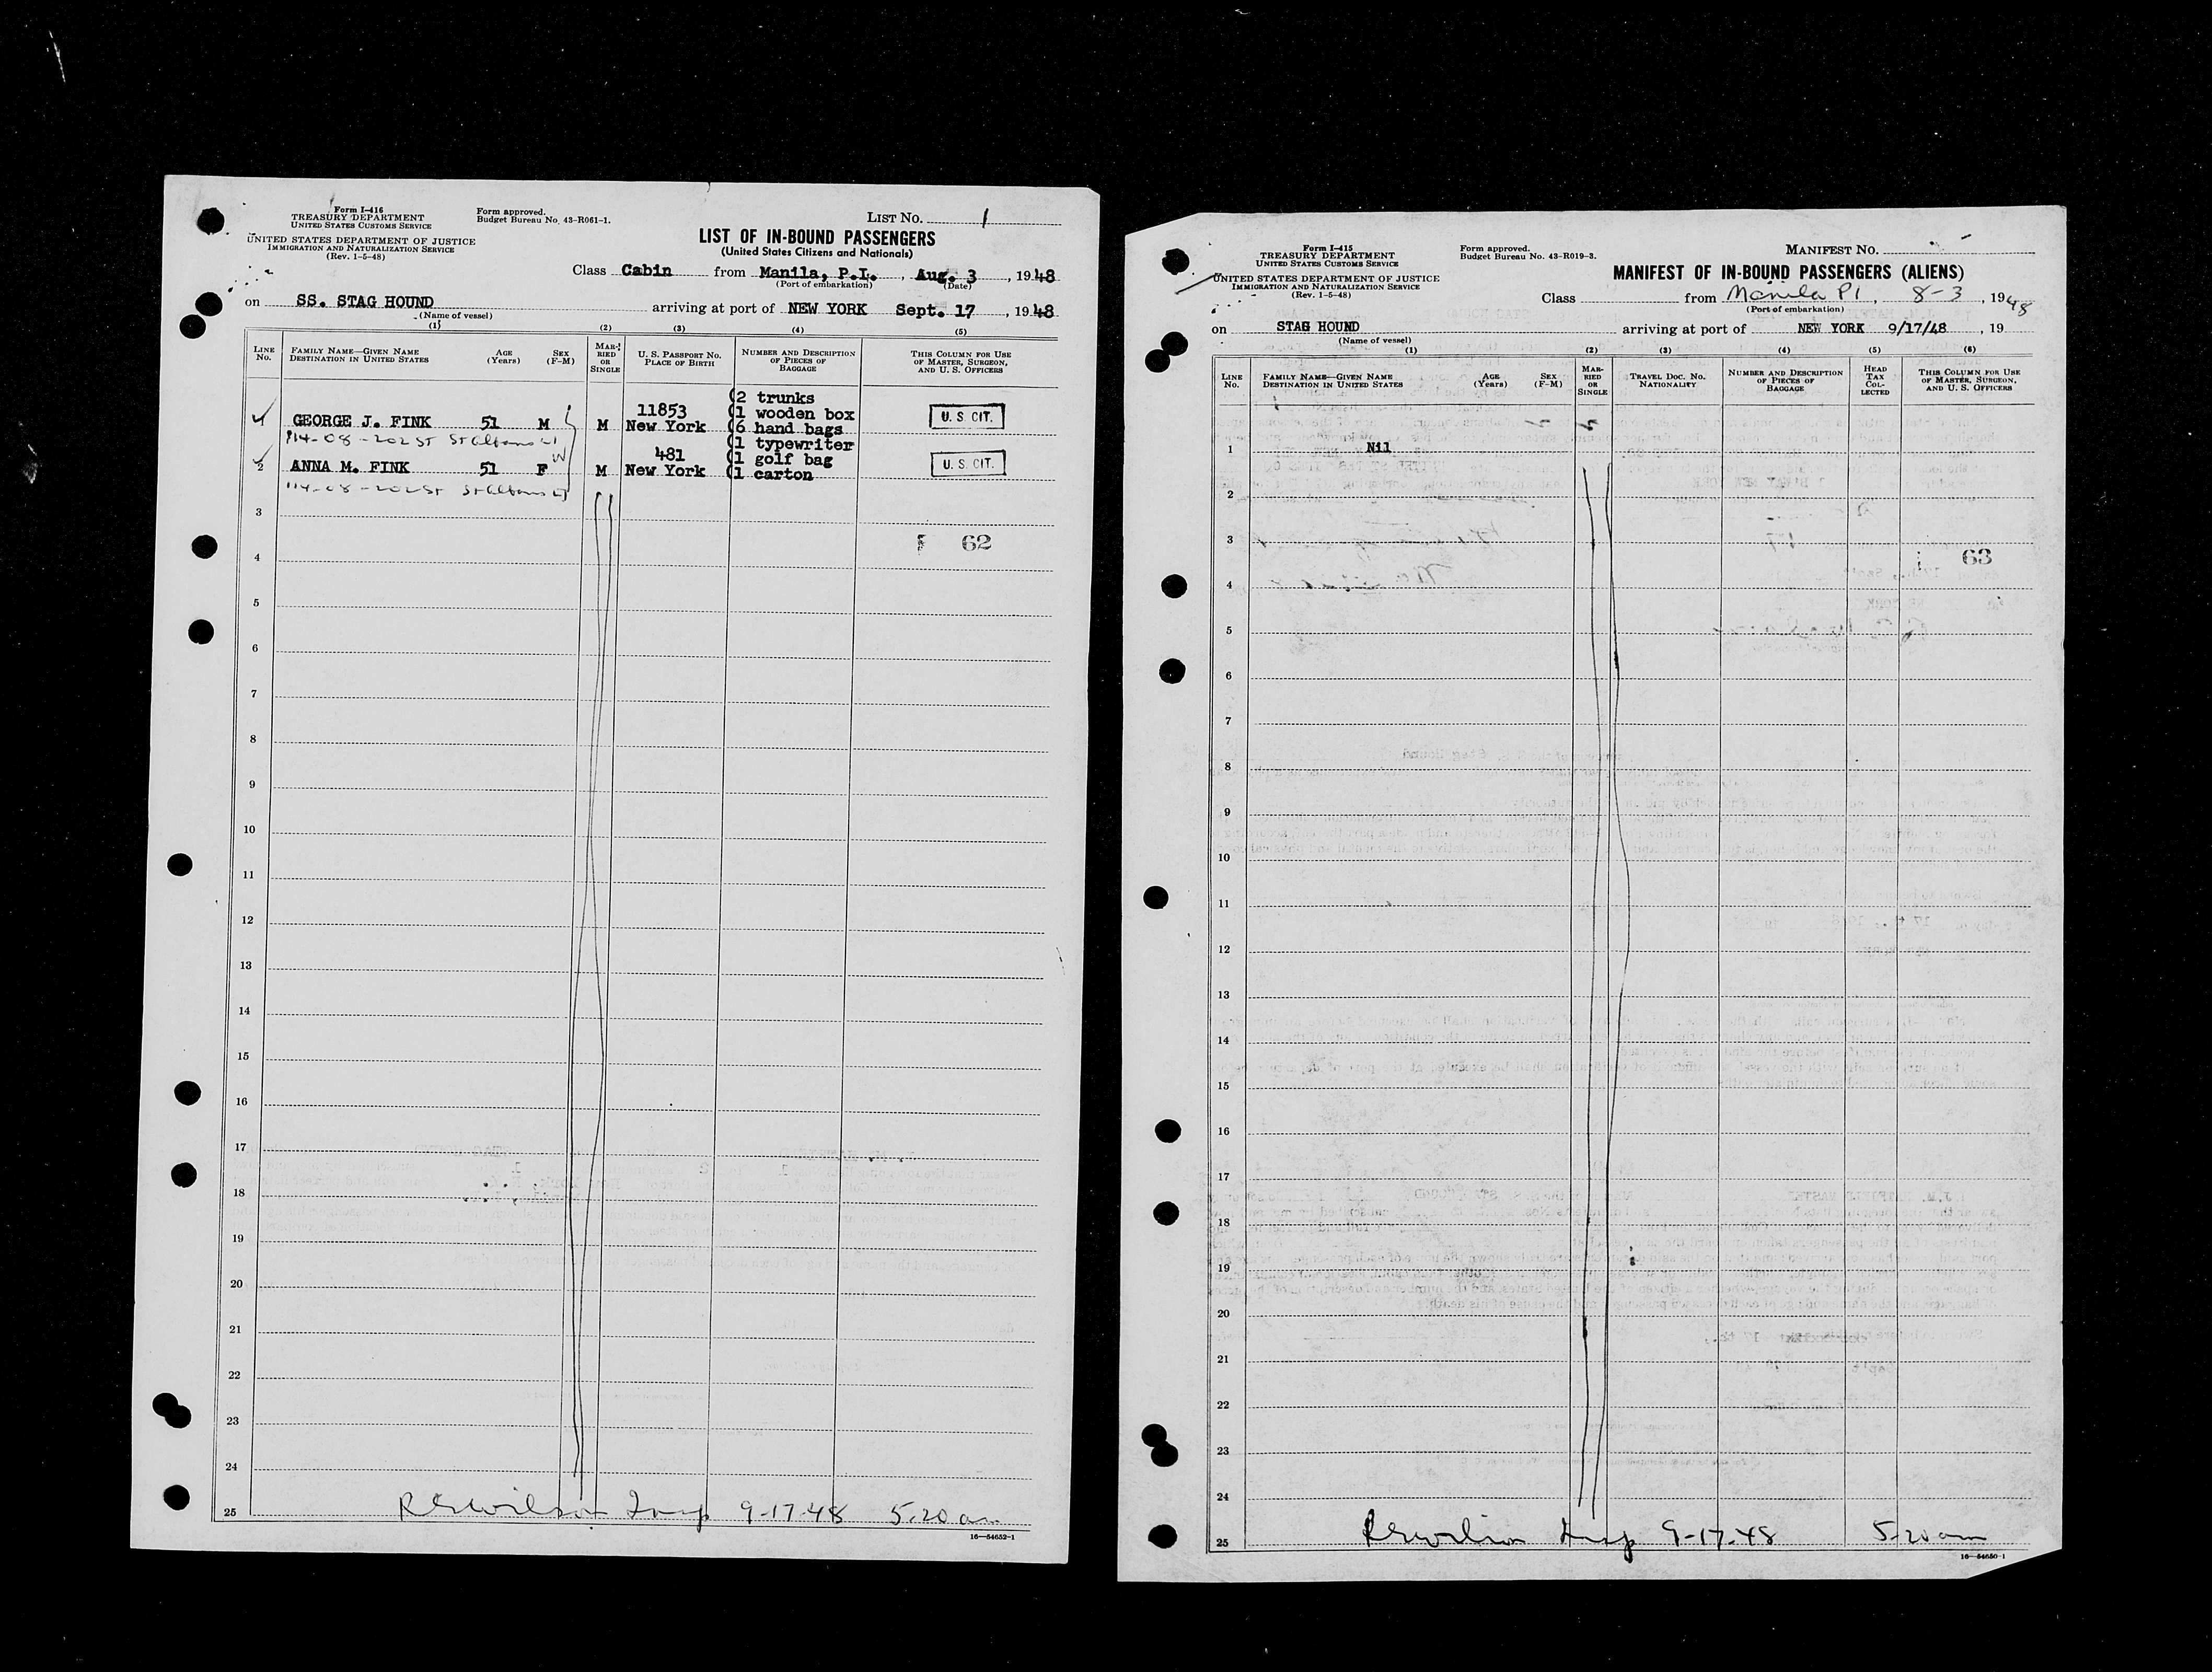 Form I-416
TREASURY DEPARTMENT
UNITED STATES CUSTOMS SERVICE
UNITED STATES DEPARTMENT OF JUSTICE
IMMIGRATION AND NATURALIZATION SERVICE
(Rev. 1-5-48)
Form approved.
Budget Bureau No. 43-R061-1.
LIST NO. 1
LIST OF IN-BOUND PASSENGERS
(United States Citizens and Nationals)
Class Cabin from Manila, P.I., Aug. 3, 1948
(Port of embarkation) (Date)
on SS. STAG HOUND arriving at port of NEW YORK Sept. 17, 1948
(Name of vessel)
(1) (2) (3) (4) (5)
LINE NO. FAMILY NAME—GIVEN NAME DESTINATION IN UNITED STATES AGE (Years) SEX (F-M) MARRIED OR SINGLE U. S. PASSPORT NO. PLACE OF BIRTH NUMBER AND DESCRIPTION OF PIECES OF BAGGAGE THIS COLUMN FOR USE OF MASTER, SURGEON, AND U. S. OFFICERS
(2 trunks
11853 (1 wooden box
GEORGE J. FINK 51 M M New York (6 hand bags U. S. CIT.
114-08-202 St St Albans LI (1 typewriter
481 (1 golf bag
2 ANNA M. FINK 51 F M New York (1 carton U. S. CIT.
114-08-202 St St Albans LI
3
62
4
5
6
7
8
9
10
11
12
13
14
15
16
17
18
19
20
21
22
23
24
25 R E Wilson Insp 9-17-48 5:20 am
16—54652-1
Form I-415
TREASURY DEPARTMENT
UNITED STATES CUSTOMS SERVICE
UNITED STATES DEPARTMENT OF JUSTICE
IMMIGRATION AND NATURALIZATION SERVICE
(Rev. 1-5-48)
Form approved.
Budget Bureau No. 43-R019-3.
MANIFEST NO.
MANIFEST OF IN-BOUND PASSENGERS (ALIENS)
Class from Manila PI, 8-3, 1948
(Port of embarkation)
on STAG HOUND arriving at port of NEW YORK 9/17/48, 19
(Name of vessel)
(1) (2) (3) (4) (5) (6)
LINE NO. FAMILY NAME—GIVEN NAME DESTINATION IN UNITED STATES AGE (Years) SEX (F-M) MARRIED OR SINGLE TRAVEL DOC. NO. NATIONALITY NUMBER AND DESCRIPTION OF PIECES OF BAGGAGE HEAD TAX COLLECTED THIS COLUMN FOR USE OF MASTER, SURGEON, AND U. S. OFFICERS
1 Nil
2
3
63
4
5
6
7
8
9
10
11
12
13
14
15
16
17
18
19
20
21
22
23
24
25 R E Wilson Insp 9-17-48 5-20 am
16—54650-1